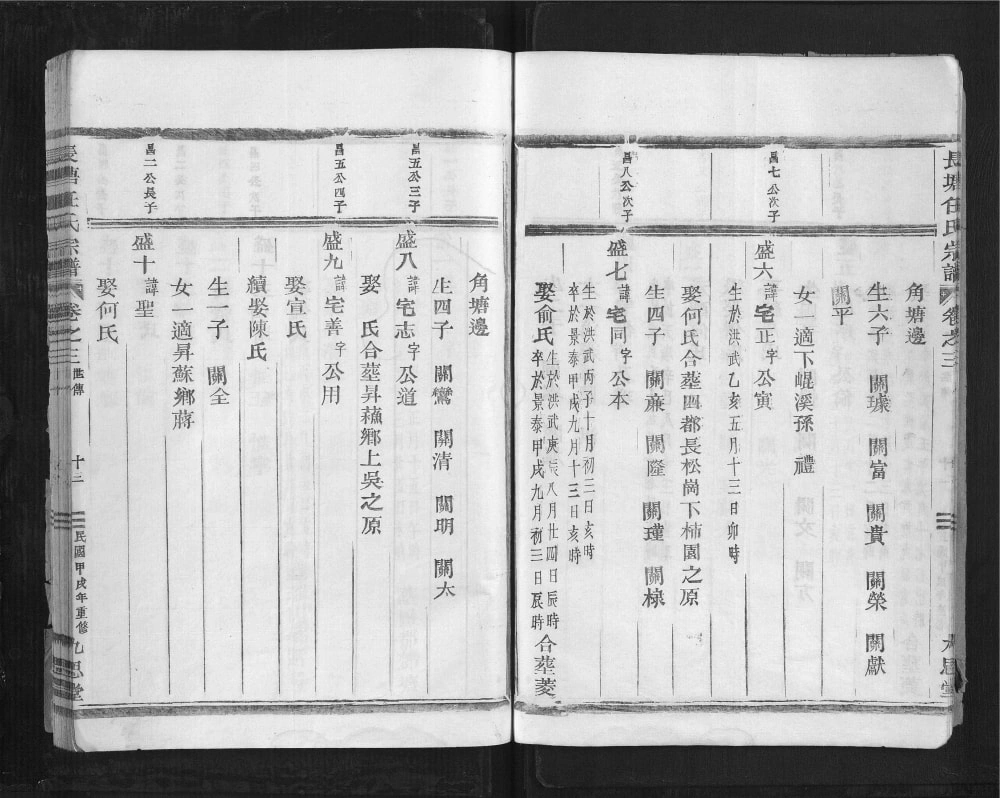 長塘任氏宗譜 卷之三
九思堂
角塘邊
生六子 關璩 關富 關貴 關榮 關獻
關平
女一適下崐溪孫 禮
昌七公次子
盛六 諱宅正 字公寅
生於洪武乙亥五月十三日卯時
娶何氏合塟四都長松崗下柿園之原
生四子 關亷 關隆 關瑾 關棣
昌八公次子
盛七 諱宅同 字公本
生於洪武丙子十月初二日亥時
卒於景泰甲戌九月十三日亥時
娶俞氏
生於洪武庚辰八月廿四日辰時
卒於景泰甲戌九月初三日辰時
合塟菱
角塘邊
生四子 關鸞 關清 關明 關太
昌五公三子
盛八 諱宅志 字公道
娶 氏合塟昇蘓鄉上吳之原
昌五公四子
盛九 諱宅善 字公用
娶宣氏
續娶陳氏
生一子 關全
女一適昇蘇鄉蔣
昌二公長子
盛十 諱聖
娶何氏
長塘任氏宗譜 卷之三 世傳 十三 民國甲戌年重修 九思堂